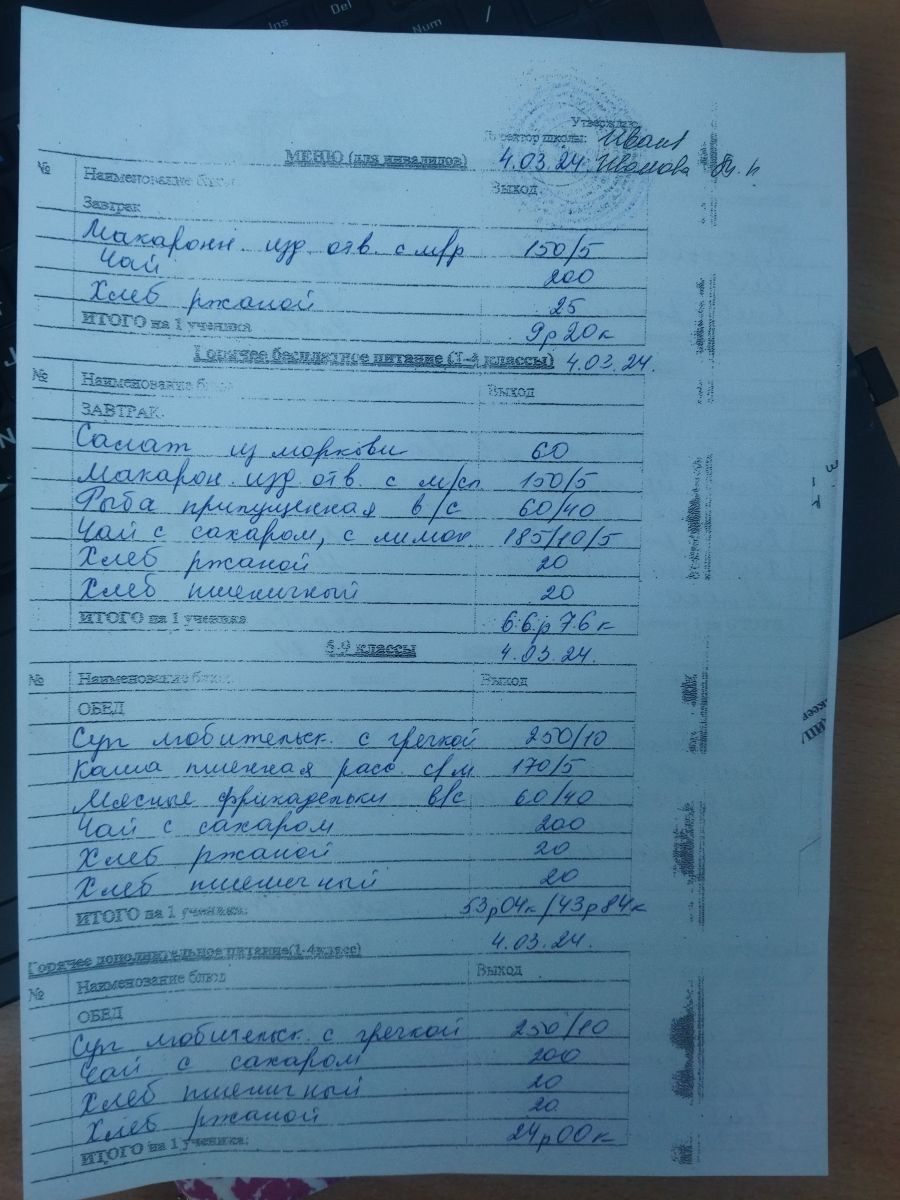 Ins Del
Num /
Утверждаю
Директор школы: Иван
МЕНЮ (для инвалидов) 4.03.24. Иванова
№ Наименование блюд Выход
Завтрак
Макаронн. изд отв. с м/р 150/5
Чай 200
Хлеб ржаной 25
ИТОГО на 1 ученика 9р 20к
Горячее бесплатное питание (1-4 классы) 4.03.24.
№ Наименование блюд Выход
ЗАВТРАК
Салат из моркови 60
Макарон. изд отв. с м/сл 150/5
Рыба припущенная в/с 60/40
Чай с сахаром, с лимон 185/10/5
Хлеб ржаной 20
Хлеб пшеничный 20
ИТОГО на 1 ученика 66р 76к
5-9 классы 4.03.24.
№ Наименование блюд Выход
ОБЕД
Суп любительск. с гречкой 250/10
Каша пшенная расс. с/м 170/5
Мясные фрикадельки в/с 60/40
Чай с сахаром 200
Хлеб ржаной 20
Хлеб пшеничный 20
ИТОГО на 1 ученика: 53р04к/43р84к
4.03.24.
Горячее дополнительное питание(1-4 класс)
№ Наименование блюд Выход
ОБЕД
Суп любительск. с гречкой 250/10
Чай с сахаром 200
Хлеб пшеничный 20
Хлеб ржаной 20
ИТОГО на 1 ученика: 24р00к